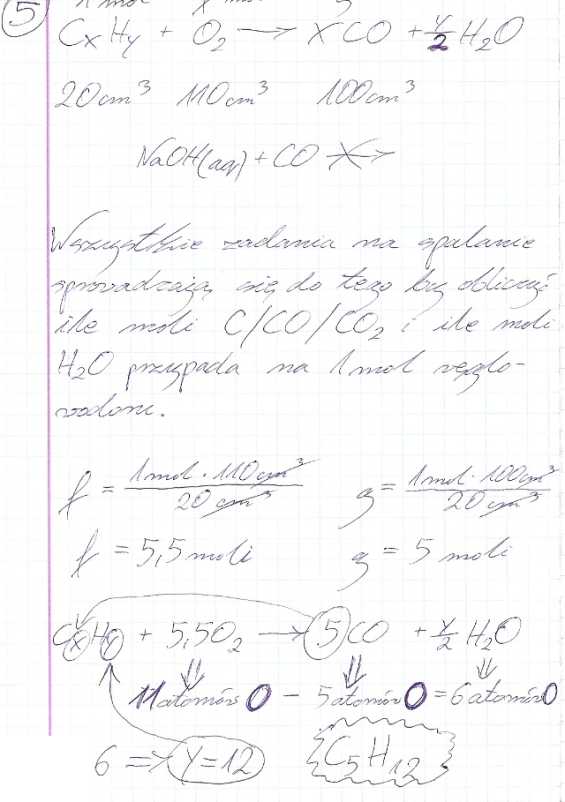 5
CxHy + O2 → XCO + Y/2 H2O
20cm³ 110cm³ 100cm³
NaOH(aq) + CO
Wszystkie zadania na spalanie
sprowadzają się do tego by obliczyć
ile moli C/CO/CO2 i ile moli
H2O przypada na 1 mol węglo-
wodoru.
f = 1mol · 110cm³ / 20cm³ g = 1mol · 100cm³ / 20cm³
f = 5,5 moli g = 5 moli
CxHy + 5,5O2 → 5CO + Y/2 H2O
11 atomów O – 5 atomów O = 6 atomów O
6 => Y=12 C5H12